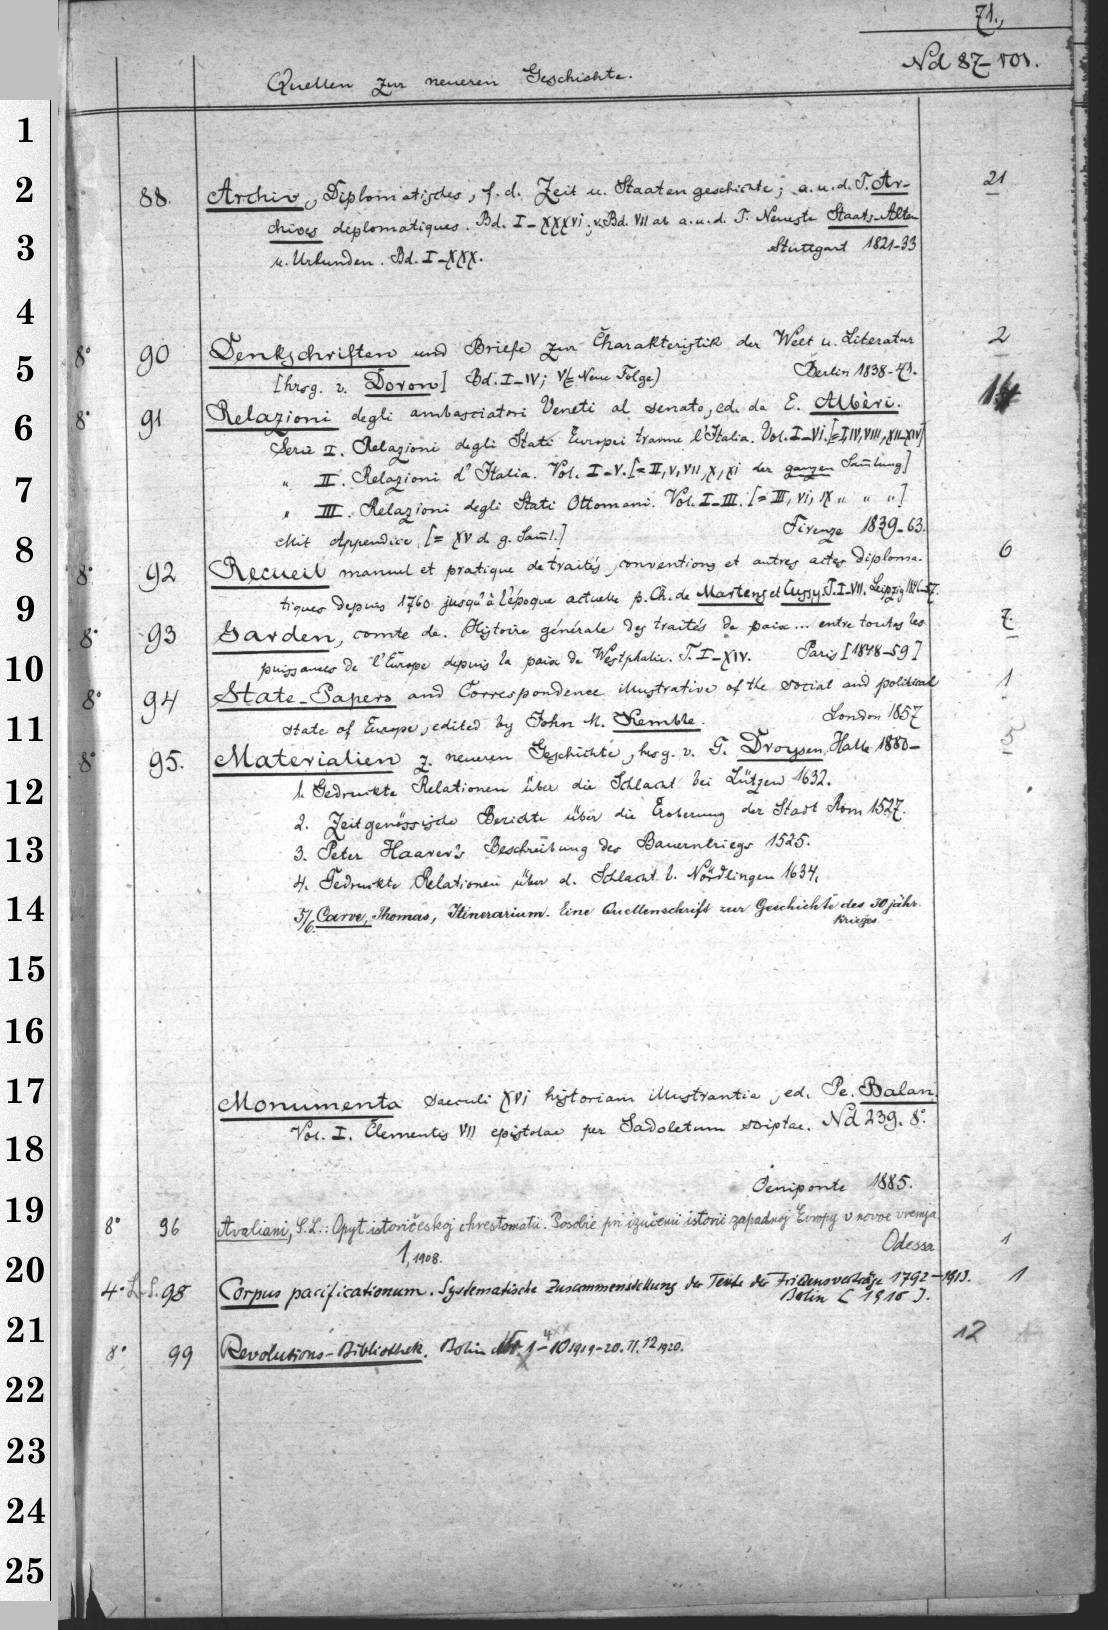 71.
Nd 87-101.
Quellen zur neueren Geschichte.
1
2
3
4
5
6
7
8
9
10
11
12
13
14
15
16
17
18
19
20
21
22
23
24
25
88. Archiv, Diplomatisches, f. d. Zeit u. Staatengeschichte; a. u. d. T. Ar- 21
chives diplomatiques. Bd. I-XXXVI; v. Bd. VII ab a. u. d. T. Neueste Staats-Akten
u. Urkunden. Bd. I-XXX. Stuttgart 1821-33
8° 90 Denkschriften und Briefe zur Charakteristik der Welt u. Literatur 2
[hrsg. v. Dorow] Bd. I-IV; V (= Neue Folge) Berlin 1838-41.
8° 91 Relazioni degli ambasciatori Veneti al senato, ed. da E. Albèri.
Serie I. Relazioni degli Stati Europei tranne l'Italia. Vol. I-VI. [= I, IV, VIII, XII-XIV]
" II. Relazioni d'Italia. Vol. I-V. [= II, V, VII, X, XI der ganzen Sam̄lung]
" III. Relazioni degli Stati Ottomani. Vol. I-III. [= III, VI, IX " " "]
Mit Appendice [= XV d. g. Sam̄l.] Firenze 1839-63.
8° 92 Recueil manuel et pratique de traités, conventions et autres actes diploma- 6
tiques depuis 1760 jusqu'à l'époque actuelle p. Ch. de Martens et Cussy. T. I-VII. Leipzig 1846-57.
8° 93 Garden, comte de. Histoire générale des traités de paix... entre toutes les 7
puissances de l'Europe depuis la paix de Westphalie. T. I-XIV. Paris [1848-59]
8° 94 State-Papers and Correspondence illustrative of the social and political 1
state of Europe, edited by John M. Kemble. London 1857
8° 95. Materialien z. neueren Geschichte, hrsg. v. G. Droysen, Halle 1880- 5
1. Gedruckte Relationen über die Schlacht bei Lützen 1632.
2. Zeitgenössische Berichte über die Eroberung der Stadt Rom 1527.
3. Peter Haarer's Beschreibung des Bauernkriegs 1525.
4. Gedruckte Relationen über d. Schlacht b. Nördlingen 1634.
5/6. Carve, Thomas, Itinerarium. Eine Quellenschrift zur Geschichte des 30jähr.
Krieges.
Monumenta saeculi XVI historiam illustrantia, ed. Pe. Balan.
Vol. I. Clementis VII epistolae per Sadoletum scriptae. Nd 239. 8°.
Oeniponte 1885.
8° 96 Avaliani, S. L.: Opyt istoričeskoj chrestomatii. Posobie pri izučenii istorii zapadnoj Evropy v novoe vremja
1, 1908. Odessa 1
4° L. S. 98 Corpus pacificationum. Systematische Zusammenstellung der Texte der Friedensverträge 1792-1913. 1
Berlin [1916].
8° 99 Revolutions-Bibliothek. Berlin Nr. 1-10 1919-20. 11. 12 1920. 12